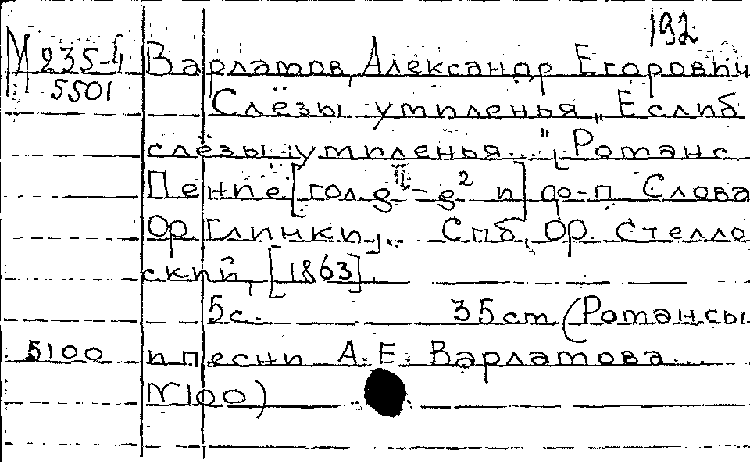 192
М 235-4 Варламов, Александр Егорович
5501 Слёзы умиленья „Если б
слёзы умиленья..." [Романс
Пение [гол. d - g² и] ф-п. Слова
Ф. Глинки]. Спб, Ф. Стеллов
ский, [1863].
5с. 35см (Романсы
5100 и песни А. Е. Варламова...
N100)